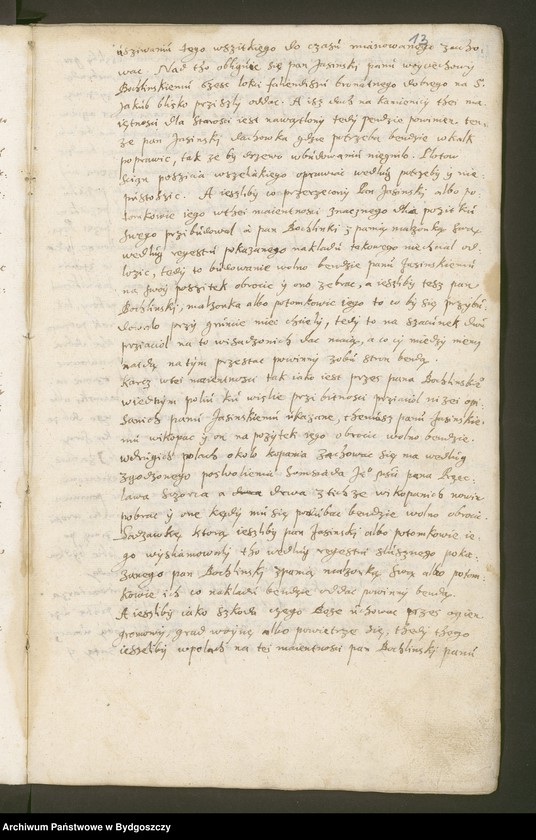 13
uziwaniu tego wszitkiego do czasu mianowanego zacho,
wac. Nad tho obliguie się pan Jasinski panu Woyciechowi
Bochlinskiemu szesc lokci falendiszu brunatnego dobrego na S.
Jakub blisko prziszly oddac. A isz dach na kamienicy thei ma,
iętnosci dla starosci iest nawątlony tedy pendzie powinien ten,
ze pan Jasinski dachowka gdzie potrzeba bendzie wkalk
poprawic, tak ze by drzewo wbudowaniu niegnilo. Plotow
wszelakiego oprawowac według potrzeby y nie,
A iesliby co przerzeczony Pan Jasinski albo po,
tomkowie iego wthei maientnosci znacznego dla pozitku
swego przibudowal a pan Bochlinski z panią malzonką swą
według regestru pokazanego nakladu takowego niechcial od,
lozic, tedy to budowanie wolno bendzie panu Jasinskiemu
na swoy poszitek obrocic y ono zebrac, a iesliby tesz pan
Bochlinski, malzonka albo potomkowie iego to co by się przybu,
dowalo przy gruncie miec chcieli, tedy to na szacunek dwu
przyaciol na to wisadzonich dac maią, a co ci miedzy niemi
naidą na tym przestac powinny zobu stron bendą.
Karcz wtei maientnosci tak iako iest przes pana Bochlinskie°
wiednym polu ku wislie przi bitnosci prziaciol nizei opi,
sanich panu Jasinskiemu ukazane, themusz panu Jasinskie,
mu wikopac y on na pozytek iego obrocic wolno bendzie.
wdrugich polach okolo kopania zachowac się ma według
zgodzonego poswolienia Somsiada Je° msci pana Przec,
lawa a drwa drewa zthich ze wikopanich nowin
pobrac y one kędy mu się podobac bendzie wolno obrocic.
Sadzawkę ktorą iesliby pan Jasinski albo potomkowie ie,
go wyszlamowali tho według regestru slusznego poka,
zanego pan Bochlinski zpanią malzonką swą albo potom,
kowie ich co nakladu bendzie oddac powinny bendą.
A iesliby iako szkoda czego Boze uchoway przes ogien
gromowy, grad woynę albo powietrze się, thedy thego
iesliby wpolach na tei maientnosci pan Bochlinski panu
Archiwum Państwowe w Bydgoszczy